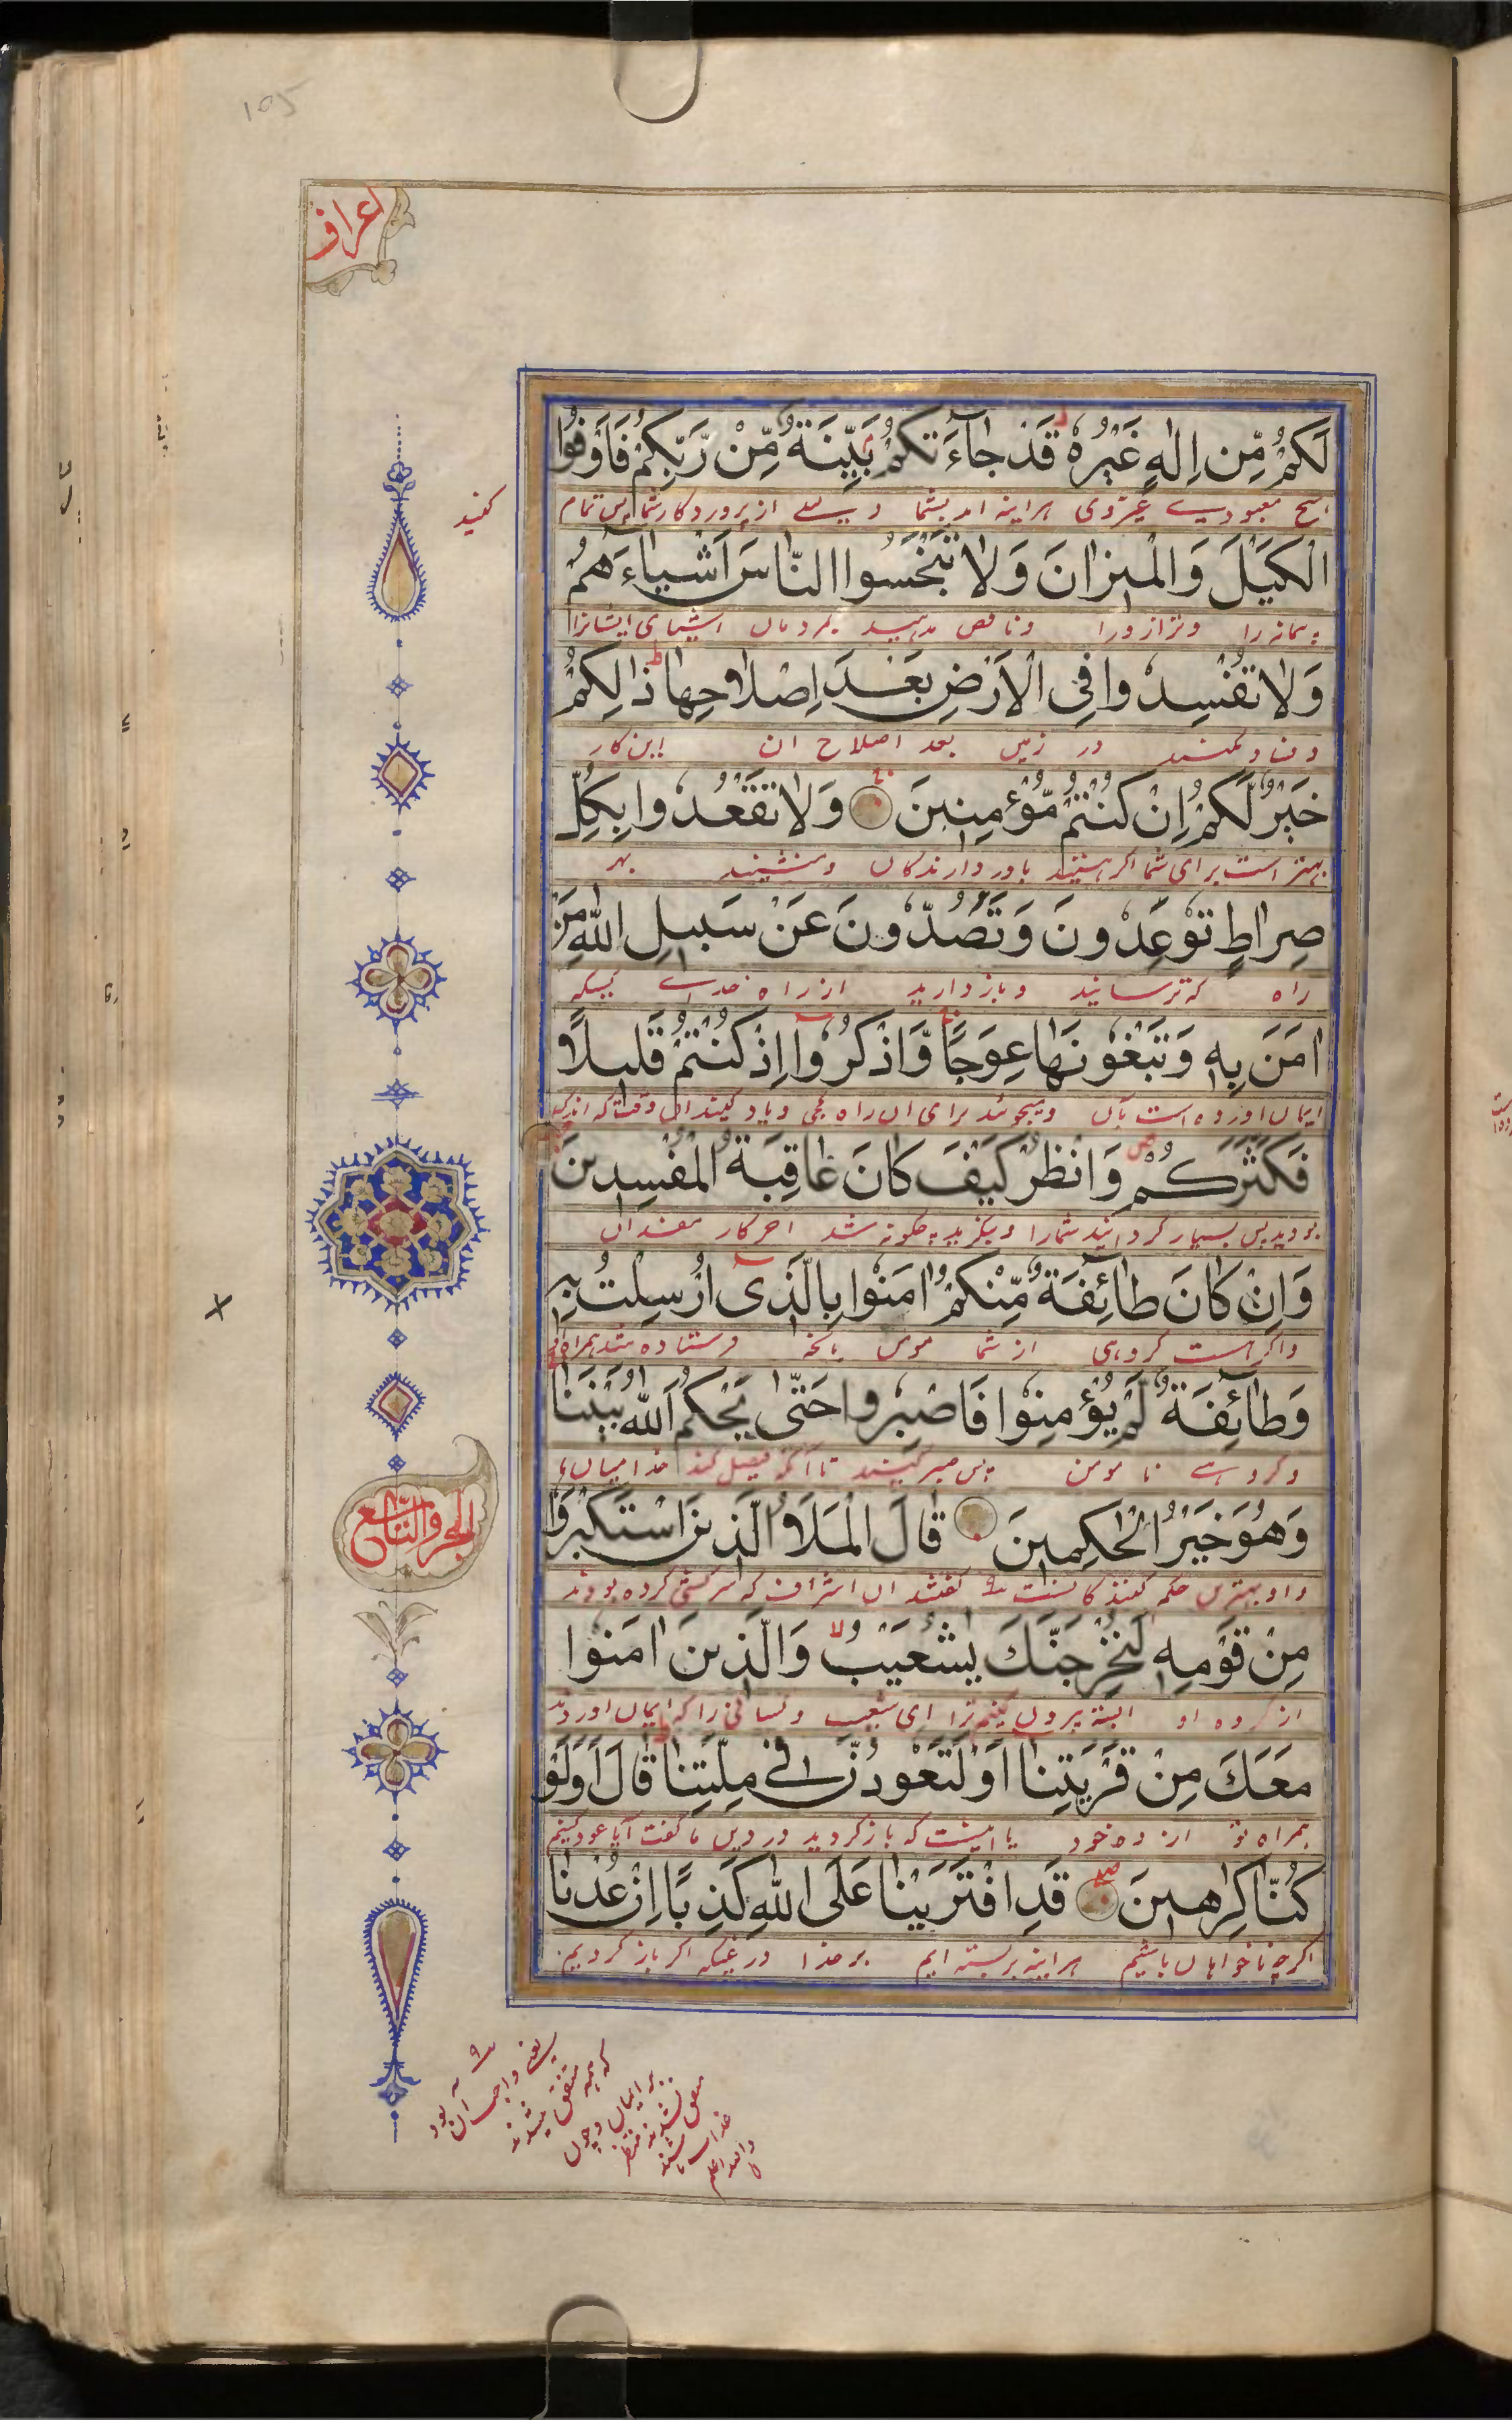 105
اعراف
لَكُمْ مِّنْ اِلٰهٍ غَيْرُهٗ قَدْ جَآءَتْكُمْ بَيِّنَةٌ مِّنْ رَّبِّكُمْ فَاَوْفُوا
هیچ معبودی غیروی هراینه امد بشما دلیلی از پروردکار شما پس تمام
کنید
الْكَيْلَ وَالْمِيْزَانَ وَلَا تَبْخَسُوا النَّاسَ اَشْيَاءَهُمْ
پیمانه را وترازورا وناقص مدهید بمردمان اشیای ایشانرا
وَلَا تُفْسِدُوا فِى الْاَرْضِ بَعْدَ اِصْلَاحِهَا ذٰلِكُمْ
وفساد مکنید در زمین بعد اصلاح ان این کار
خَيْرٌ لَّكُمْ اِنْ كُنْتُمْ مُّؤْمِنِيْنَ وَلَا تَقْعُدُوا بِكُلِّ
بهتر است برای شما اکر هستید باور دارندکان ومنشینید بهر
صِرَاطٍ تُوْعِدُوْنَ وَتَصُدُّوْنَ عَنْ سَبِيْلِ اللهِ مَنْ
راه که ترسانید وبازدارید از راه خدای کسیکه
اٰمَنَ بِهٖ وَتَبْغُوْنَهَا عِوَجًا وَّاذْكُرُوْا اِذْ كُنْتُمْ قَلِيْلًا
ایمان اورده است بآن ومیجوئید برای ان راه کجی ویاد کنید ان وقت که اندک
فَكَثَّرَكُمْ وَانْظُرْ كَيْفَ كَانَ عَاقِبَةُ الْمُفْسِدِيْنَ
بودید پس بسیار کردانید شمارا وبنکرید چکونه شد اخر کار مفسدان
وَاِنْ كَانَ طَآئِفَةٌ مِّنْكُمْ اٰمَنُوْا بِالَّذِىْ اُرْسِلْتُ بِهٖ
واکر هست کروهی از شما مومن بانچه فرستاده شد همراه
وَطَآئِفَةٌ لَّمْ يُؤْمِنُوْا فَاصْبِرُوا حَتّٰى يَحْكُمَ اللهُ بَيْنَنَا
وکروهی نا مومن پس صبر کنید تا آنکه فیصل کند خدا میان ما
وَهُوَ خَيْرُ الْحٰكِمِيْنَ قَالَ الْمَلَاُ الَّذِيْنَ اسْتَكْبَرُوْا
الجزو التاسع
واو بهترین حکم کنندکانست کفتند ان اشراف که سرکشی کرده بودند
مِنْ قَوْمِهٖ لَنُخْرِجَنَّكَ يٰشُعَيْبُ وَالَّذِيْنَ اٰمَنُوْا
از کروه او البته بیرون کنیم ترا ای شعیب وکسانی را که ایمان اوردند
مَعَكَ مِنْ قَرْيَتِنَا اَوْ لَتَعُوْدُنَّ فِى مِلَّتِنَا قَالَ اَوَلَوْ
همراه تو از ده خود یا اینست که باز کردید در دین ما کفت آیا عود کنیم
كُنَّا كٰرِهِيْنَ قَدِ افْتَرَيْنَا عَلَى اللهِ كَذِبًا اِنْ عُدْنَا
اکرچه ناخواهان باشیم هراینه بربسته ایم بر خدا دروغ اکر باز کردیم
یعنی واجب آن بود
که همه متفق میشدند
بر ایمان وچون
متفق نشدند منتظر
عذاب باشند
والله اعلم